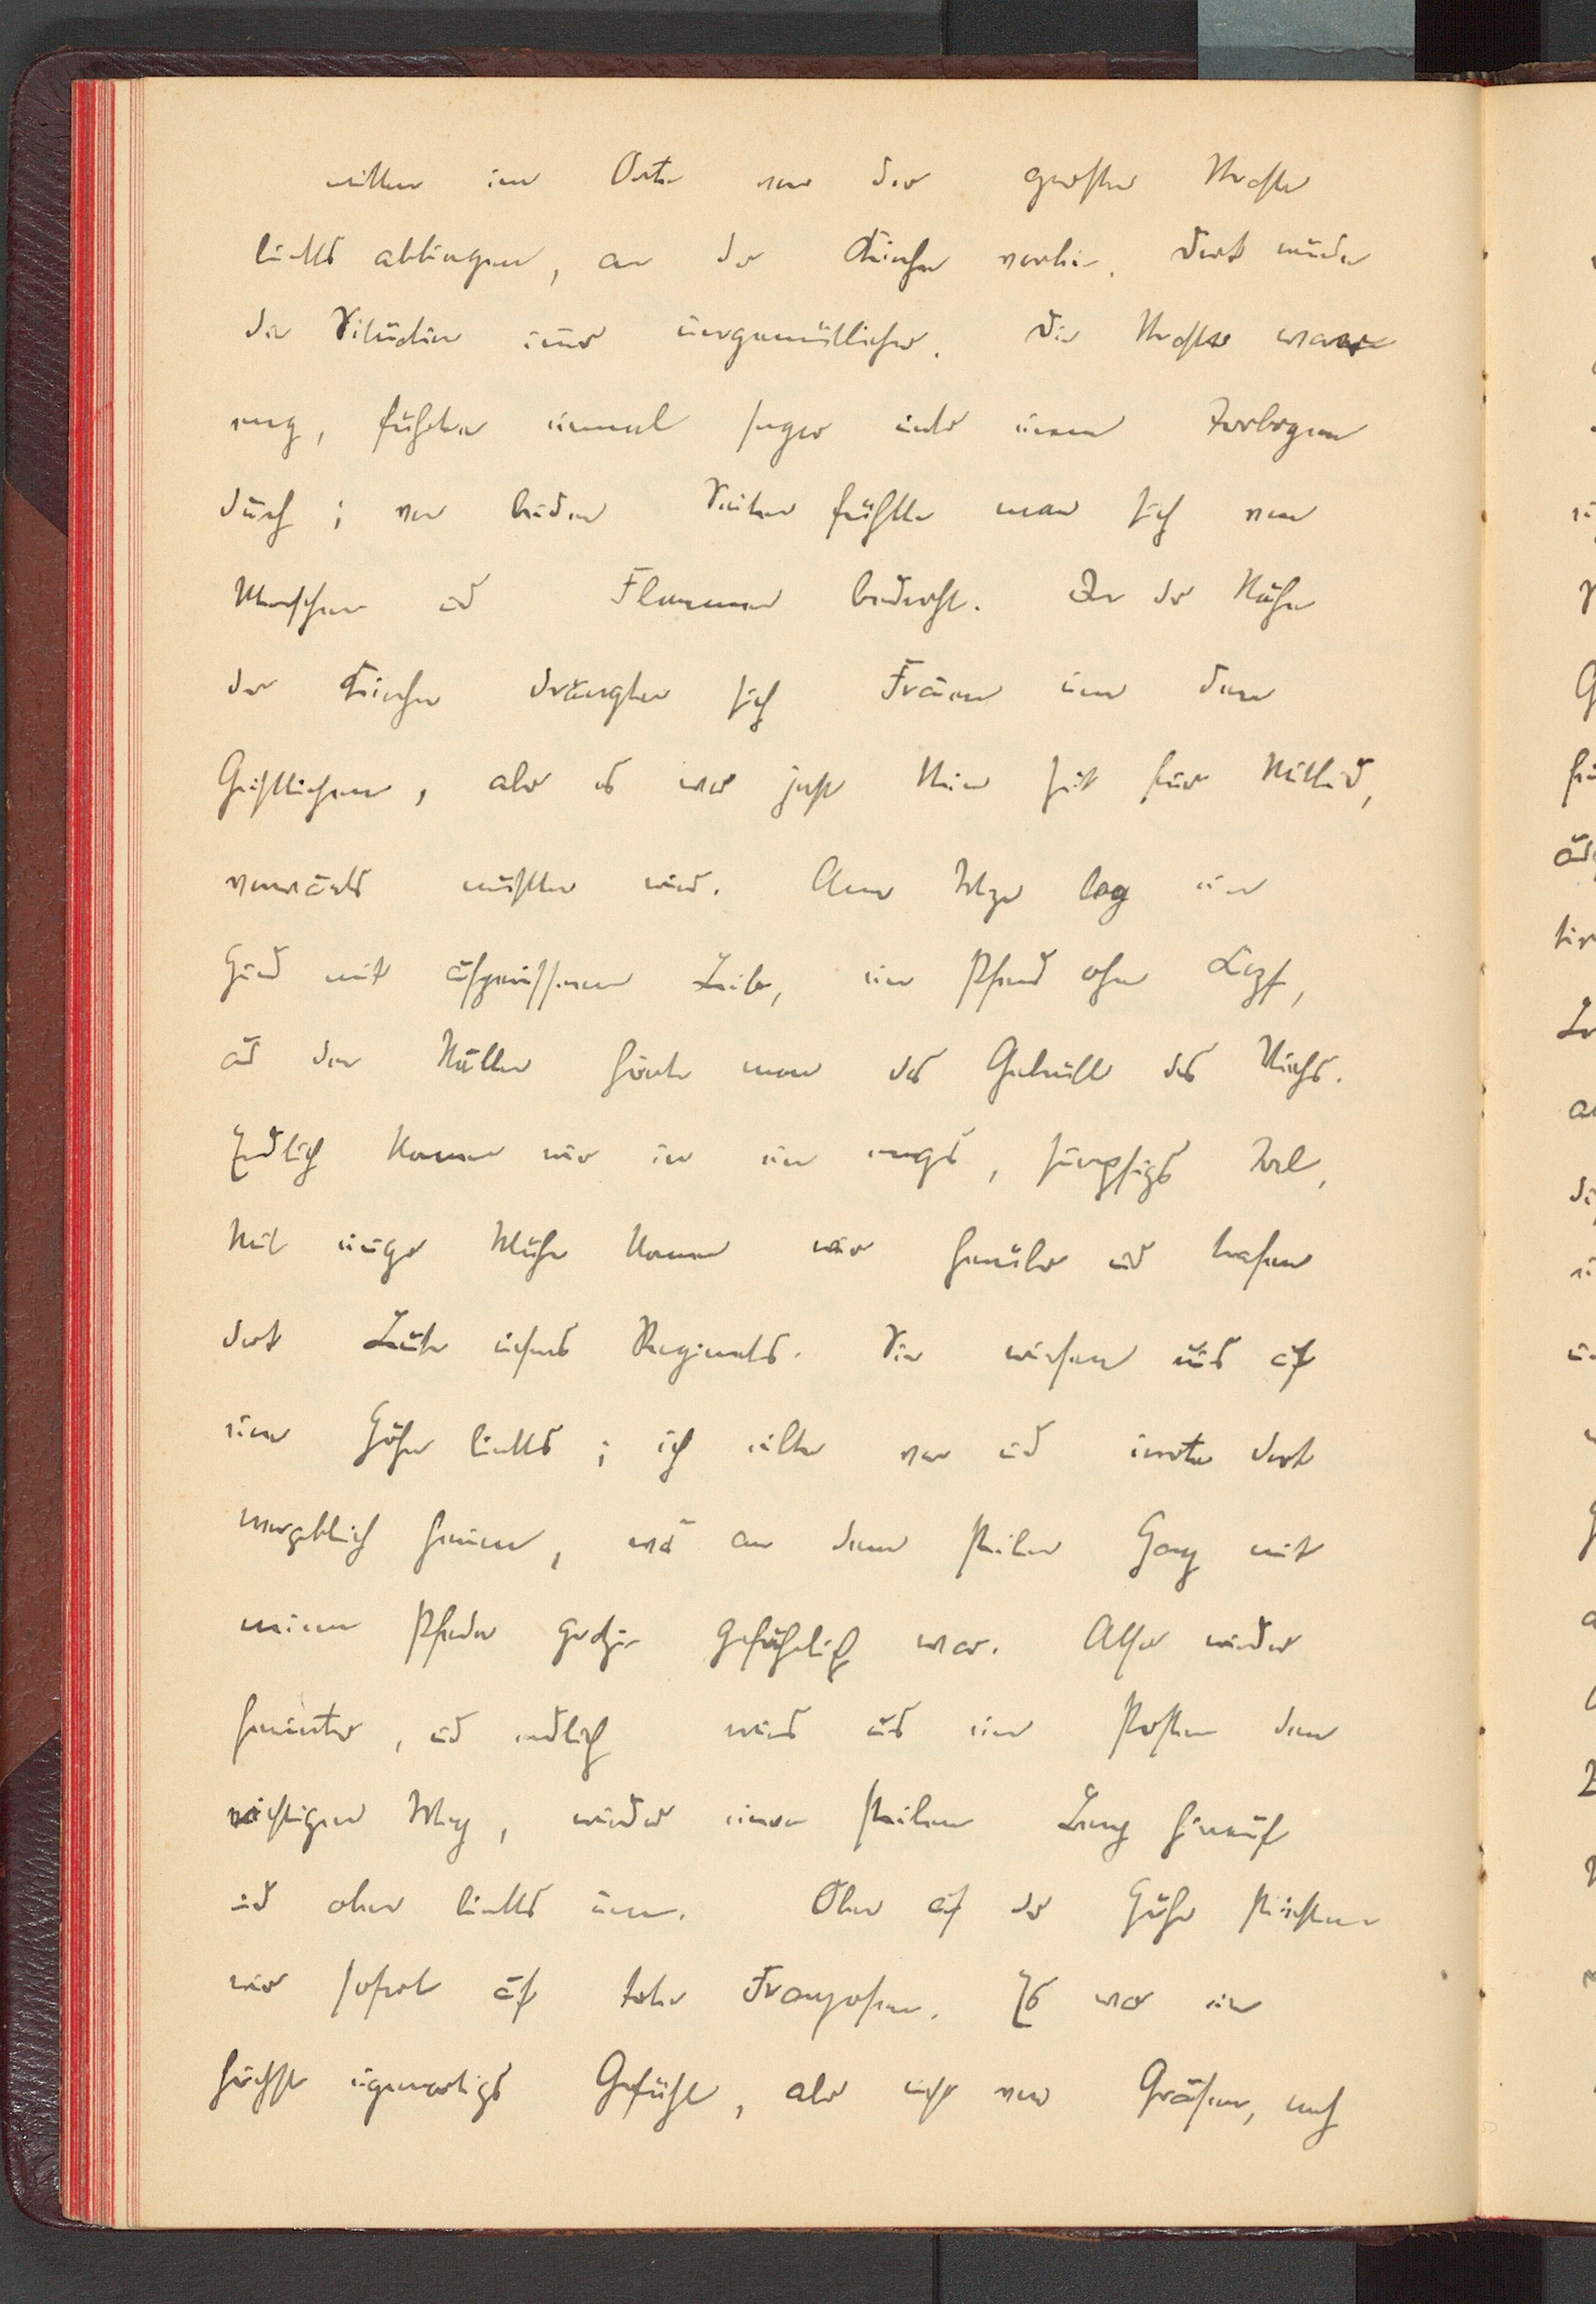 mitten im Orte von der großen Straße
links abbiegen, an der Kirche vorbei. Dort wurde
die Situation immer ungemütlicher. Die Straße war
eng, führte einmal sogar unter einem Torbogen
durch; von beiden Seiten fühlte man sich von
Menschen und Flammen bedroht. In der Nähe
der Kirche drängten sich Frauen um den
Geistlichen, aber es war jetzt keine Zeit für Mitleid,
vorwärts mußten wir. Am Wege lag ein
Hund mit aufgerissenem Leib, ein Pferd ohne Kopf,
aus den Ställen hörte man das Gebrüll des Viehs.
Endlich kamen wir in ein enges, sumpfiges Tal,
mit einiger Mühe kamen wir hinüber und trafen
dort Leute unseres Regiments. Sie wiesen uns auf
eine Höhe links; ich eilte vor und irrte dort
vergeblich herum, was an dem steilen Hang mit
meinem Pferde geradezu gefährlich war. Also wieder
herunter, und endlich wies uns ein Posten den
richtigen Weg, wieder einen steilen Hang hinauf
und oben links um. Oben auf der Höhe stießen
wir sofort auf tote Franzosen. Es war ein
höchst eigenartiges Gefühl, aber nicht von Grausen, noch